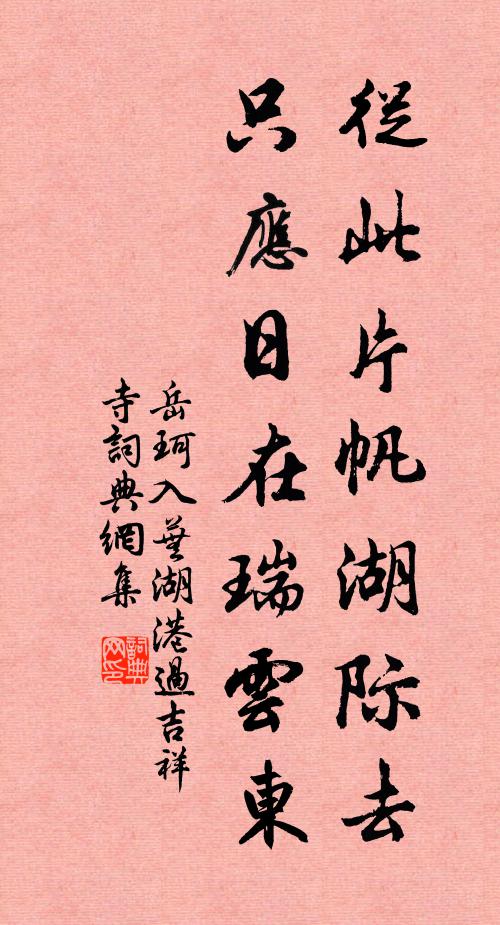 從此片帆湖际去
只應日在瑞雲東
岳珂入蕪湖港過吉祥
寺詞典網集
詞典网印